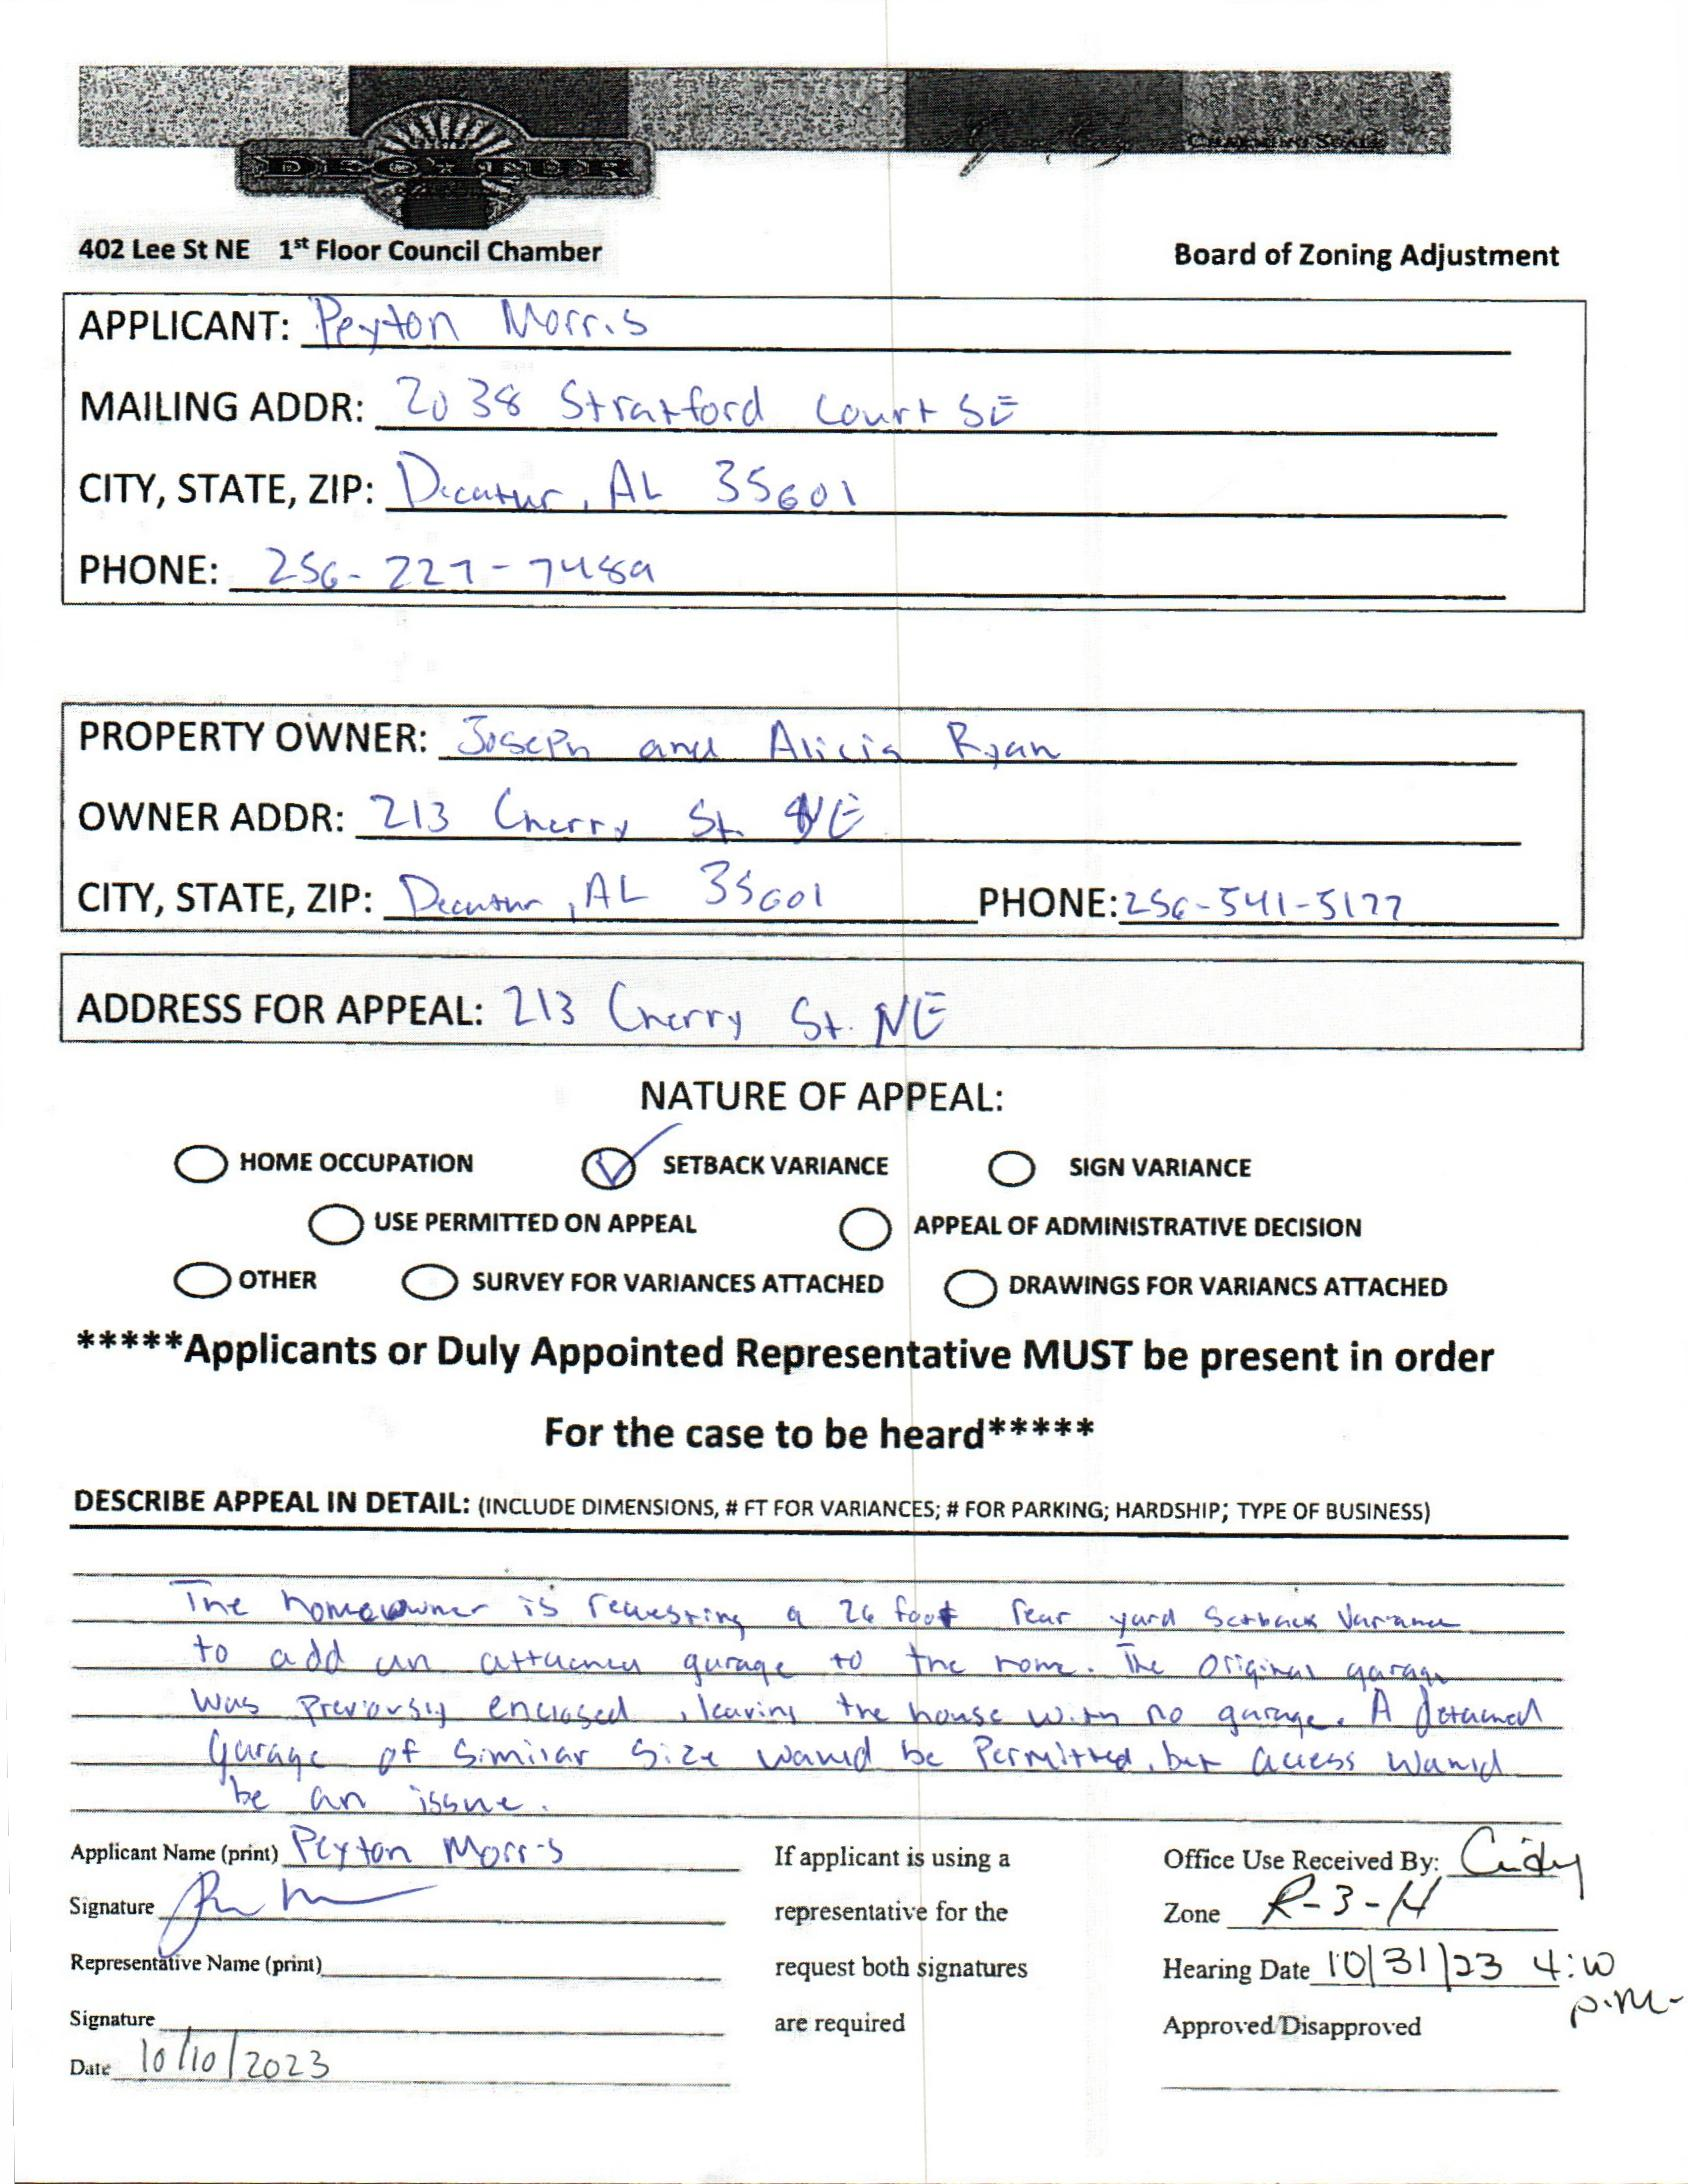 DECATUR
CHARMING SCALE
402 Lee St NE 1st Floor Council Chamber Board of Zoning Adjustment
APPLICANT: Peyton Morris
MAILING ADDR: 2038 Stratford Court SE
CITY, STATE, ZIP: Decatur, AL 35601
PHONE: 256-227-7489
PROPERTY OWNER: Joseph and Alicia Ryan
OWNER ADDR: 213 Cherry St. NE
CITY, STATE, ZIP: Decatur, AL 35601 PHONE: 256-541-5177
ADDRESS FOR APPEAL: 213 Cherry St. NE
NATURE OF APPEAL:
HOME OCCUPATION SETBACK VARIANCE SIGN VARIANCE
USE PERMITTED ON APPEAL APPEAL OF ADMINISTRATIVE DECISION
OTHER SURVEY FOR VARIANCES ATTACHED DRAWINGS FOR VARIANCS ATTACHED
*****Applicants or Duly Appointed Representative MUST be present in order
For the case to be heard*****
DESCRIBE APPEAL IN DETAIL: (INCLUDE DIMENSIONS, # FT FOR VARIANCES; # FOR PARKING; HARDSHIP; TYPE OF BUSINESS)
The homeowner is requesting a 26 foot rear yard setback variance
to add an attached garage to the home. The original garage
was previously enclosed, leaving the house with no garage. A detached
garage of similar size would be permitted, but access would
be an issue.
Applicant Name (print) Peyton Morris If applicant is using a Office Use Received By: Cindy
Signature representative for the Zone R-3-H
Representative Name (print) request both signatures Hearing Date 10/31/23 4:00
p.m.
Signature are required Approved/Disapproved
Date 10/10/2023